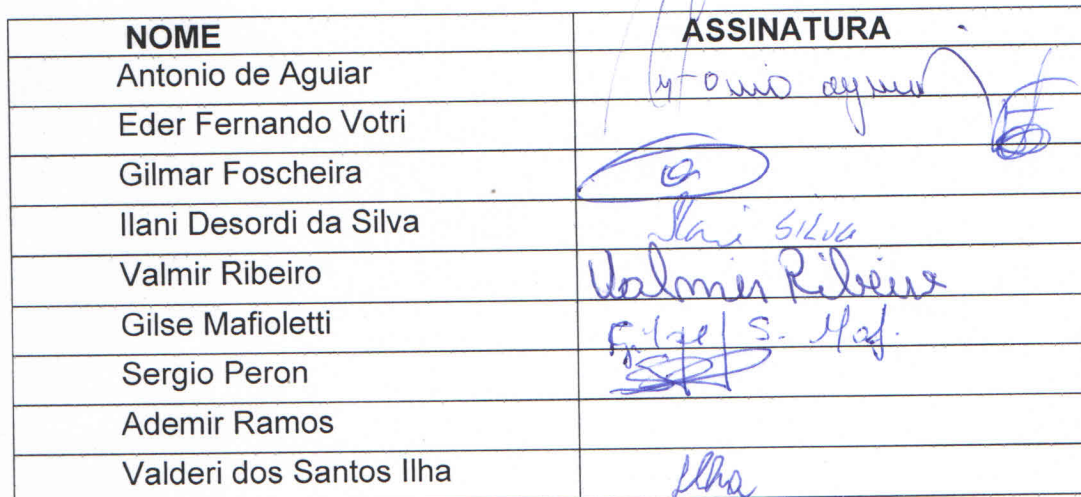 NOME ASSINATURA
Antonio de Aguiar
Eder Fernando Votri
Gilmar Foscheira
Ilani Desordi da Silva Ilani Silva
Valmir Ribeiro Valmir Ribeiro
Gilse Mafioletti S. Maf.
Sergio Peron
Ademir Ramos
Valderi dos Santos Ilha Ilha